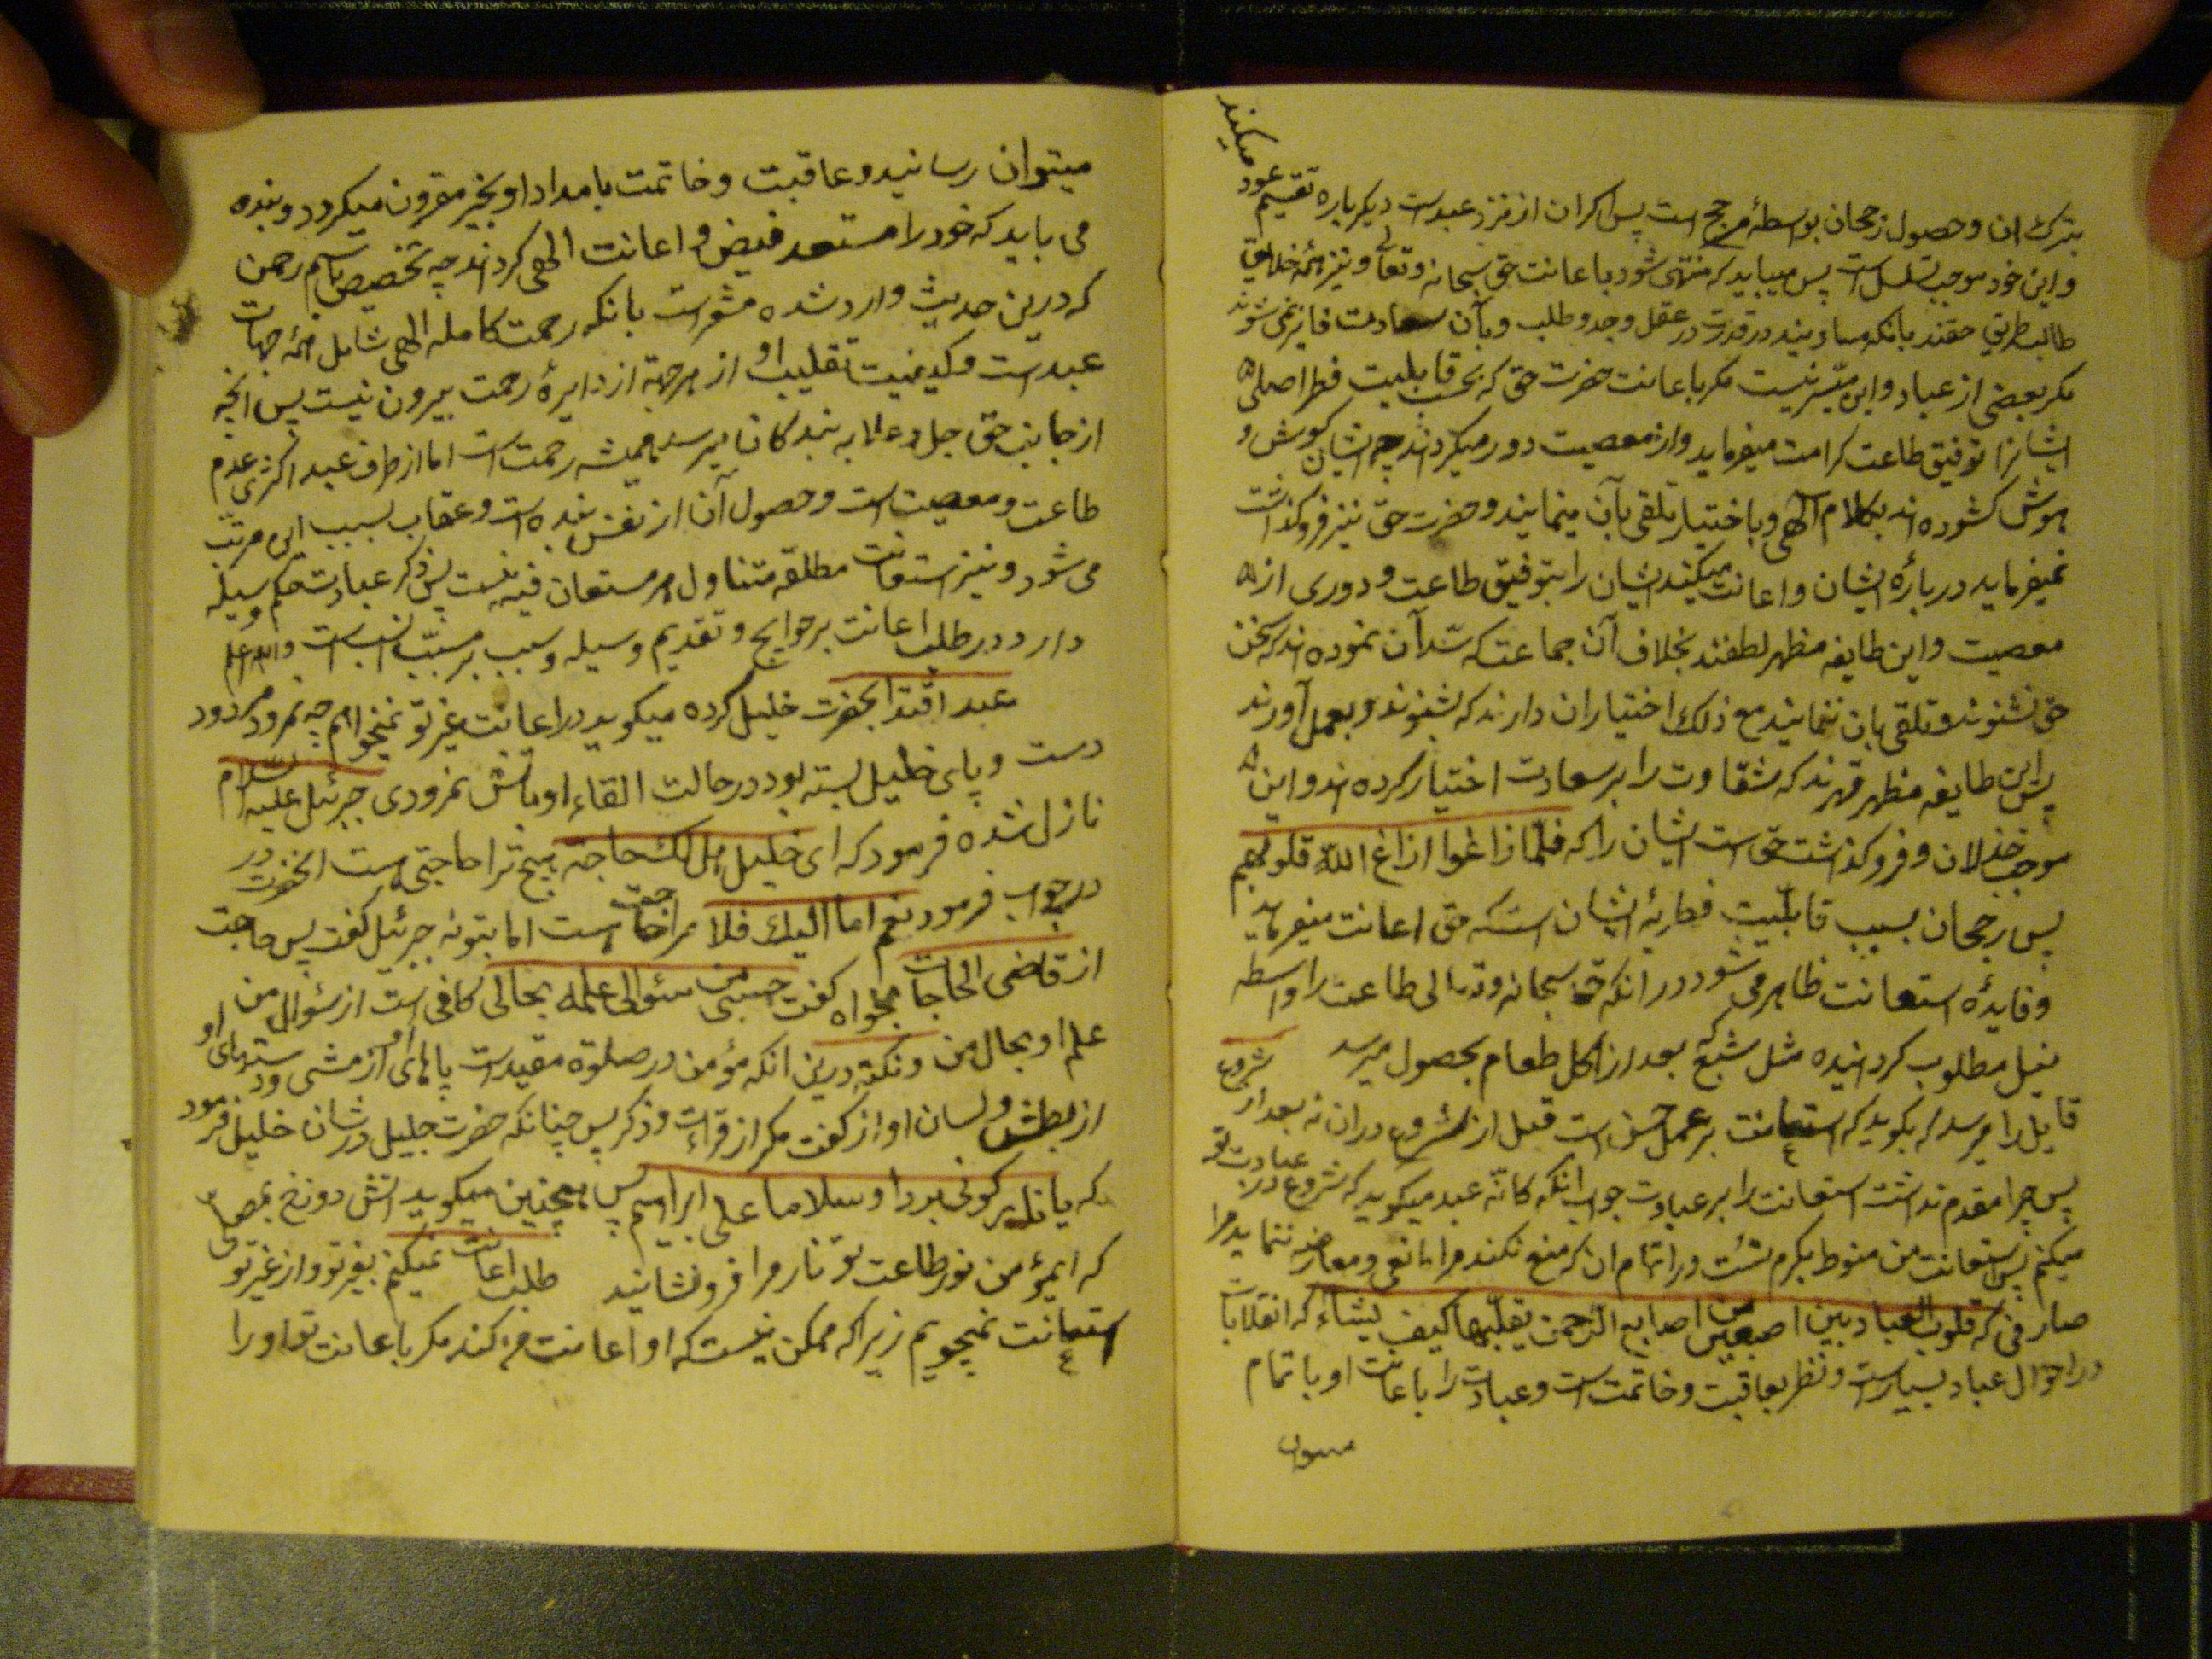 بترک ان و حصول رجحان بواسطهٔ مرجح است پس اکر ان از نزد عبد است دیکرباره تقسیم عود میکند
و این خود موجب تسلسل است پس میباید که منتهی شود باعانت حق سبحانه و تعالی و نیز همه خلایق
طالب طریق حقند بانکه مساویند در قدرت و عقل وجد و طلب و بآن سعادت فایز نمی شوند
مکر بعضی از عباد و این میسّر نیست مکر باعانت حضرت حق که بحسب قابلیت فطر اصلی
ایشانرا توفیق طاعت کرامت میفرماید و از معصیت دور میکرداند چه ایشان کوش و
هوش کشوده اند بکلام الهی و باختیار تلقی بآن مینمایند و حضرت حق نیز فروکذاشت
نمیفرماید دربارهٔ ایشان و اعانت میکند ایشان را بتوفیق طاعت و دوری از
معصیت و این طایفه مظهر لطفند بخلاف آن جماعت که سّد آن نموده اند که سخن
حق نشنوند و تلقی بان ننمایند مع ذلک اختیار ان دارند که بشنوند و بعمل آورند
پس این طایفه مظهر قهرند که شقاوت را بر سعادت اختیار کرده اند و این
موجب خذلان و فروکذاشت حق است ایشان را که فلما زاغوا ازاغ الله قلوبهم
پس رجحان بسبب قابلیت فطریه ایشان است که حق اعانت میفرماید
و فایده استعانت ظاهر می شود در انکه حق سبحانه و تعالی طاعت را واسطه
نیل مطلوب کردانیده مثل شبع که بعد از اکل طعام بحصول میرسد
قایل را میرسد که بکوید که استعانت بر عمل حسن است قبل از شروع در ان نه بعد از شروع
پس چرا مقدم نداشت استعانت را بر عبادت جواب انکه کانّه عبد میکوید که شروع در عبادت تو
میکنم پس استعانت من منوط بکرم تست در اتمام ان که منع نکند مرا مانعی و معارضه ننماید مرا
صارفی که قلوب العباد بین اصبعین من اصابع الرحمن یقلبها کیف یشاء که انقلابات
در احوال عباد بسیار است و نظر بعاقبت و خاتمت است و عبادت را باعانت او باتمام
میتوان رسانید و عاقبت و خاتمت بامداد او بخیر مقرون میکردد و بنده
می باید که خود را مستعد فیض و اعانت الهی کرداند چه تخصیص باسم رحمن
که درین حدیث وارد شده مشعر است بانکه رحمت کامله الهی شامل همه جهات
عبد است و کیفیت تقلیب او از هر جهة از دایرهٔ رحمت بیرون نیست پس انچه
از جانب حق جل و علا به بندکان میرسد همیشه رحمت است اما از طرف عبد اکثری عدم
طاعت و معصیت است و حصول آن از نفس بنده است و عقاب بسبب این مرتب
می شود و نیز استعانت مطلقه متناول هر مستعان فیه هست پس ذکر عبادت حکم وسیله
دارد در طلب اعانت بر حوایج و تقدیم وسیله و سبب بر مسبّب انسب است والله اعلم
عبد اقتدا بحضرت خلیل کرده میکوید در اعانت غیر تو نمیخواهم چه نمرود مردود
دست و پای خلیل بسته بود در حالت القاء او باتش نمرودی جبرئیل علیه السلام
نازل شده فرمود که ای خلیل هل لک حاجة هیچ ترا حاجتی هست انحضرت در
در جواب فرمود نعم اما الیک فلا مرا حاجت هست اما بتو نه جبرئیل کفت پس حاجت
از قاضی الحاجات بخواه کفت حسبی من سئوالی علمه بحالی کافی است از سؤال من
علم او بحال من و نکته درین انکه مؤمن در صلوة مقید است پاهای او از مشی و دستهای او
از بطش و لسان او از کفت مکر از قراءت و ذکر پس چنانکه حضرت جلیل در شان خلیل فرمود
که یا نار کونی بردا و سلاما علی ابراهیم پس همچنین میکوید اتش دوزخ بمصلی
که ای مؤمن نور طاعت تو نار مرا فرو نشانید طلب اعانت نمیکنم بغیر تو و از غیر تو
استعانت نمیجویم زیرا که ممکن نیست که او اعانت من کند مکر باعانت تو او را